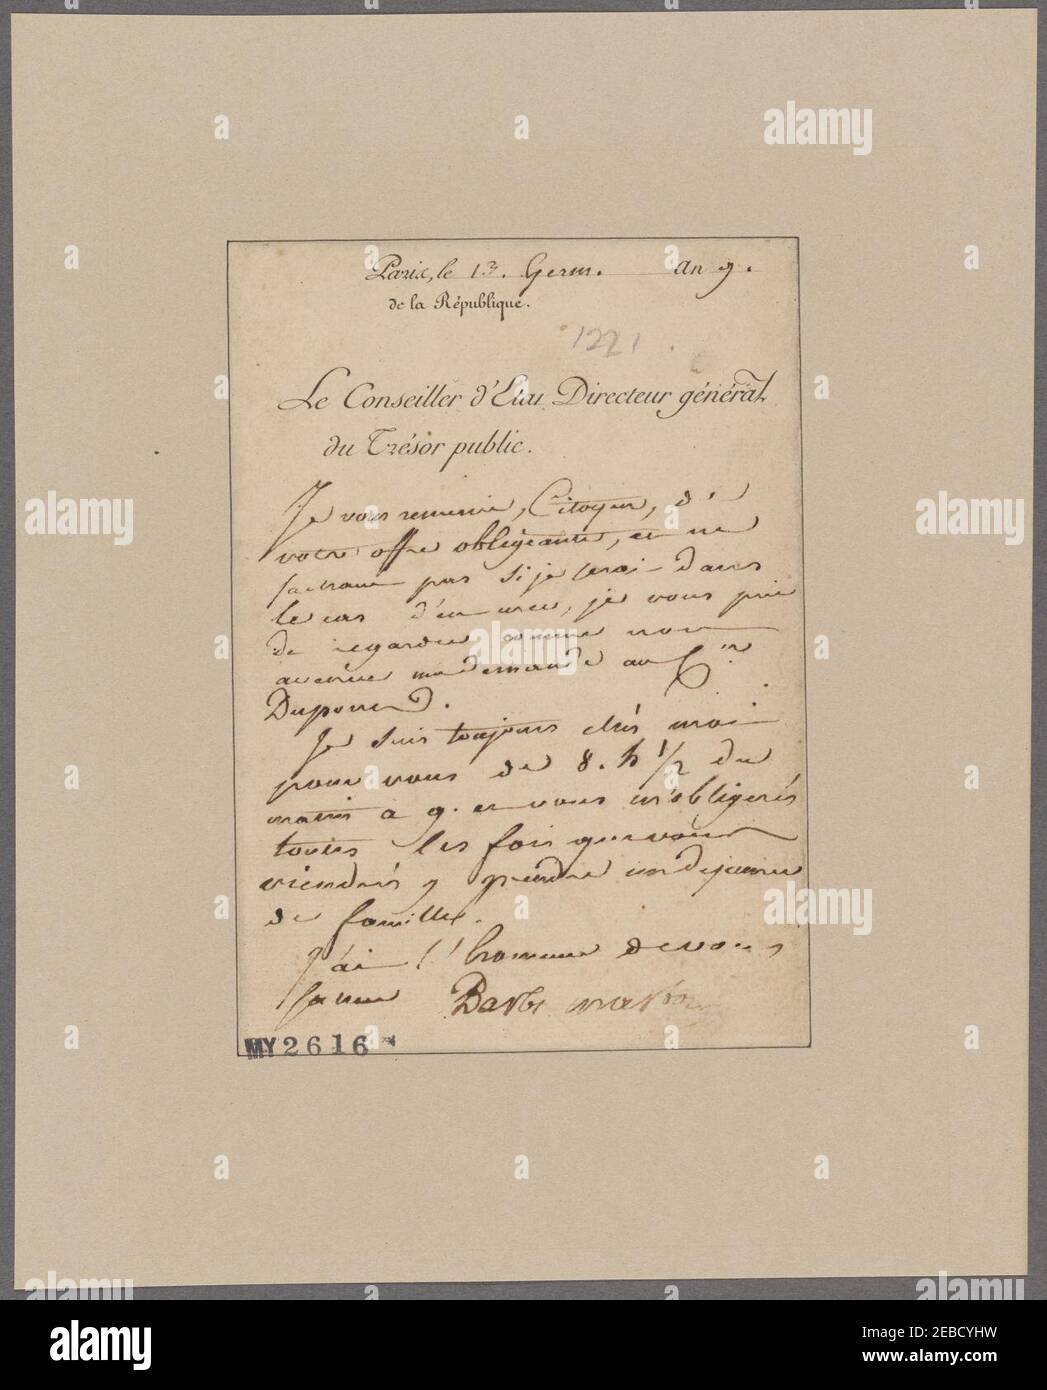 Paris, le 13. Germ. an 9.
de la République.
1221
Le Conseiller d'Etat Directeur général
du Trésor public.
Je vous remercie, Citoyen, de
votre offre obligeante, et ne
sachant pas si je serai dans
le cas d'en user, je vous prie
de regarder comme non
avenue ma demande au Cen.
Je suis toujours chés moi
pour vous de 8. h 1/2 du
matin à 9. et vous m'obligerés
toutes les fois que vous
viendrés y prendre un dejeuner
de famille.
J'ai l'honneur de vous
saluer Barbé marbois
MY2616
alamy
Image ID: 2EBCYHW
www.alamy.com